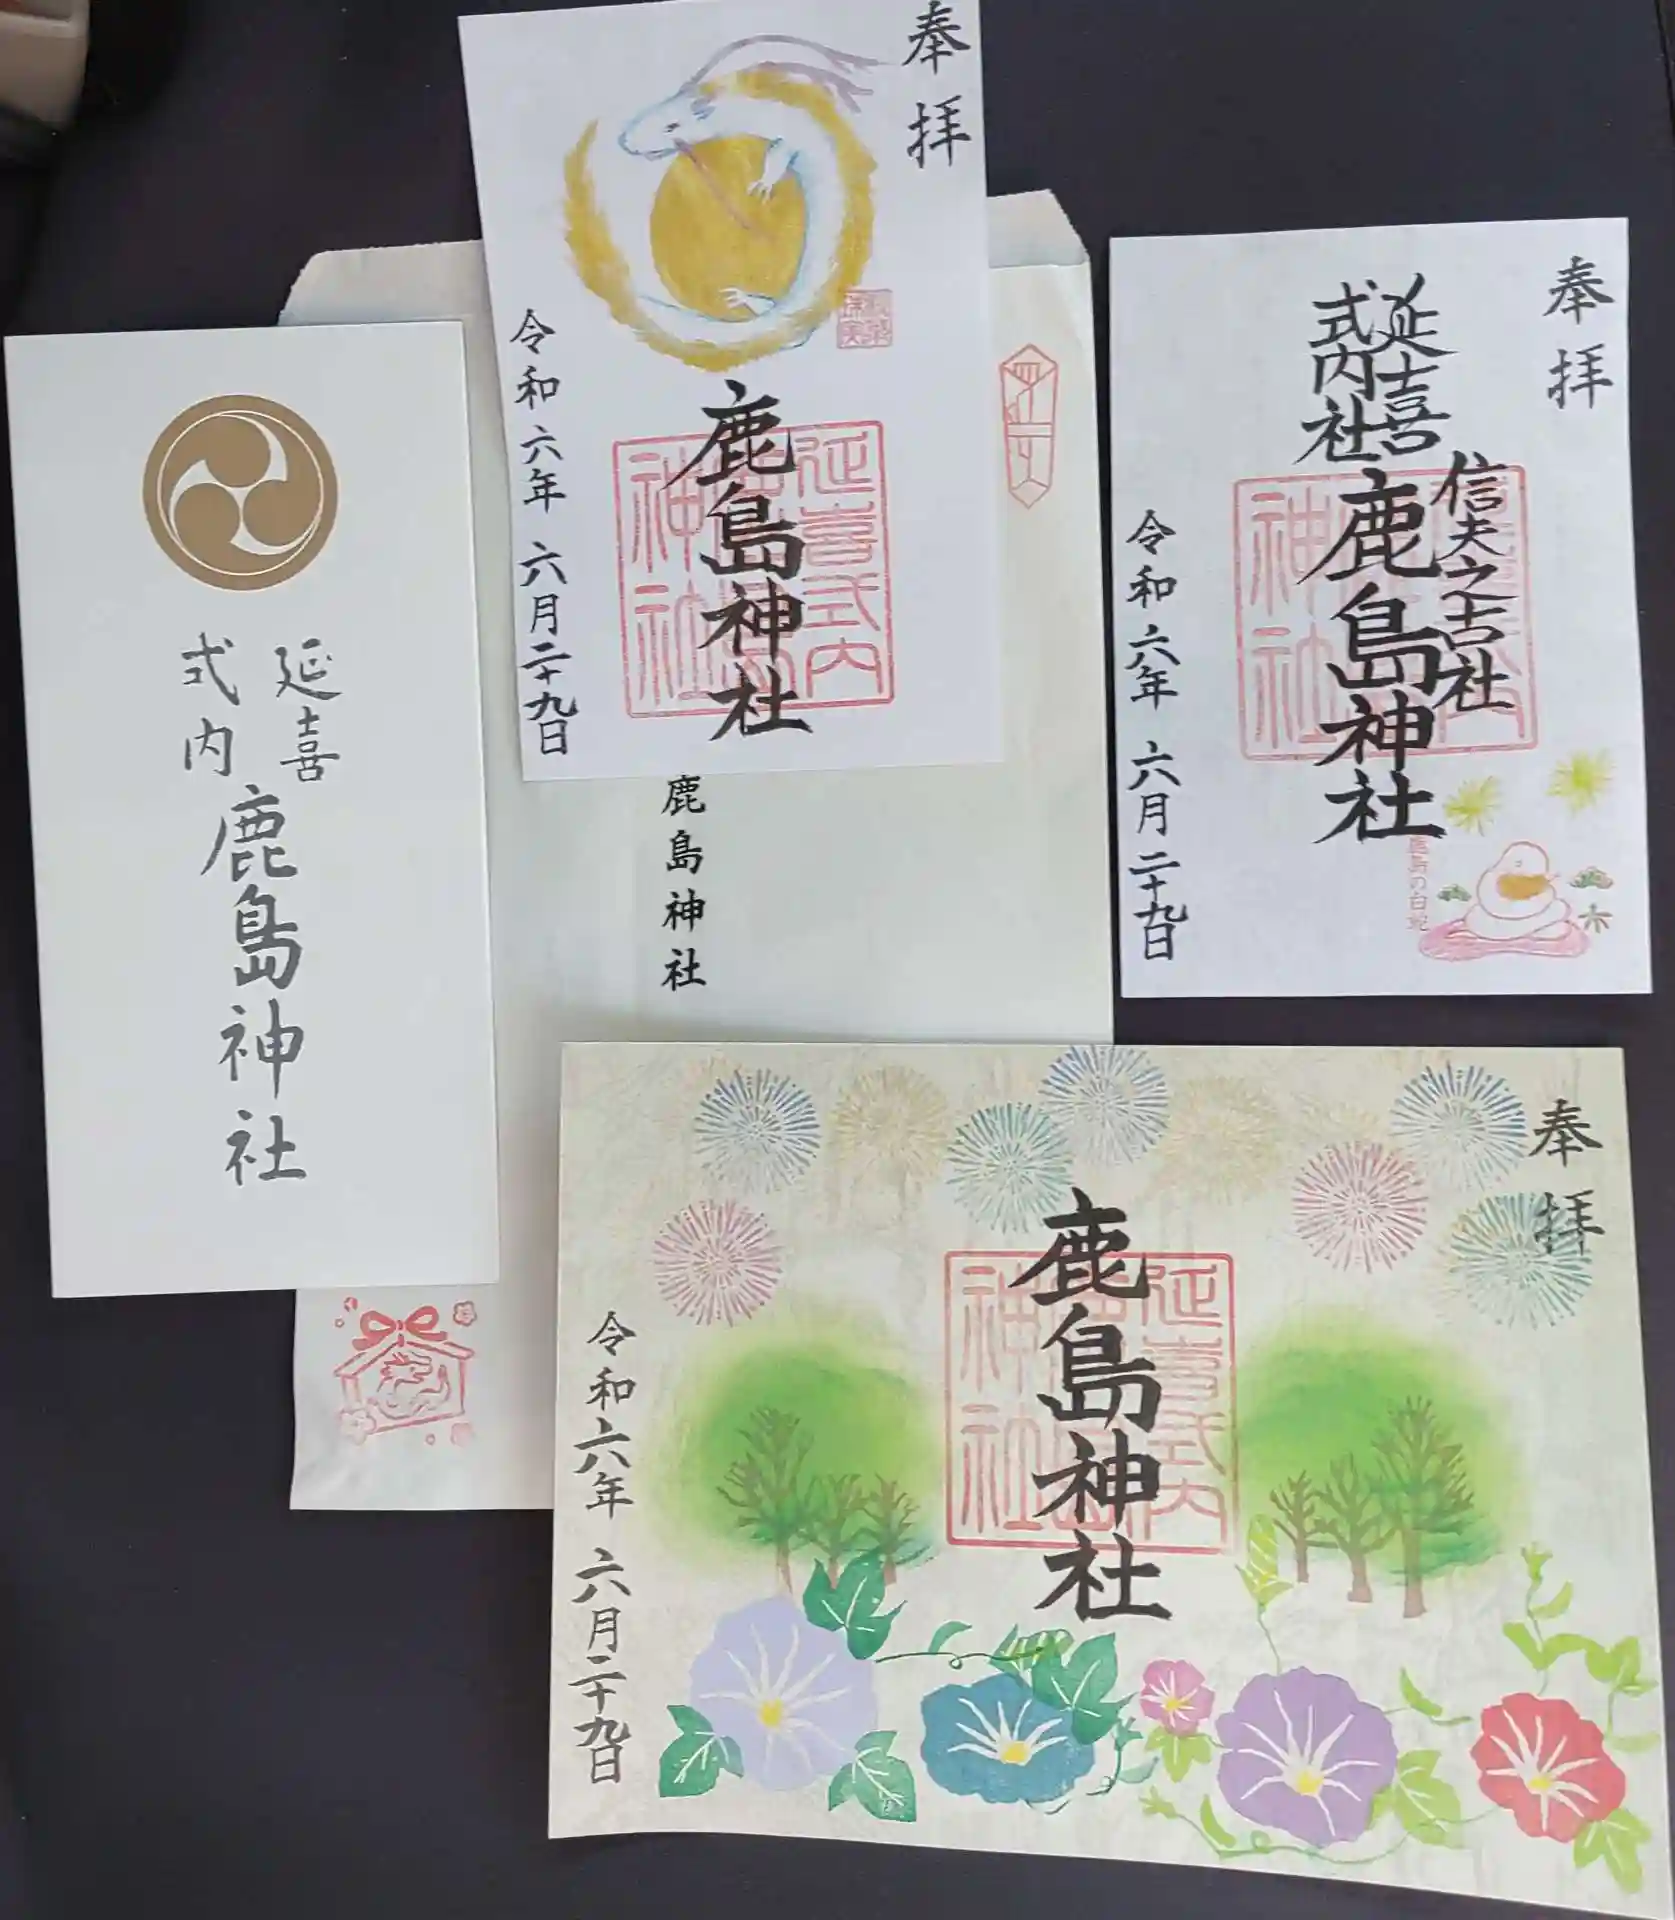 奉拝
鹿島神社
延喜式内
神社
令和六年 六月二十九日
奉拝
延喜
式内社
信夫之古社
鹿島神社
神社
令和六年 六月二十九日
鹿島の白蛇
延喜
式内
鹿島神社
鹿島神社
奉拝
鹿島神社
延喜式内
神社
令和六年 六月二十九日